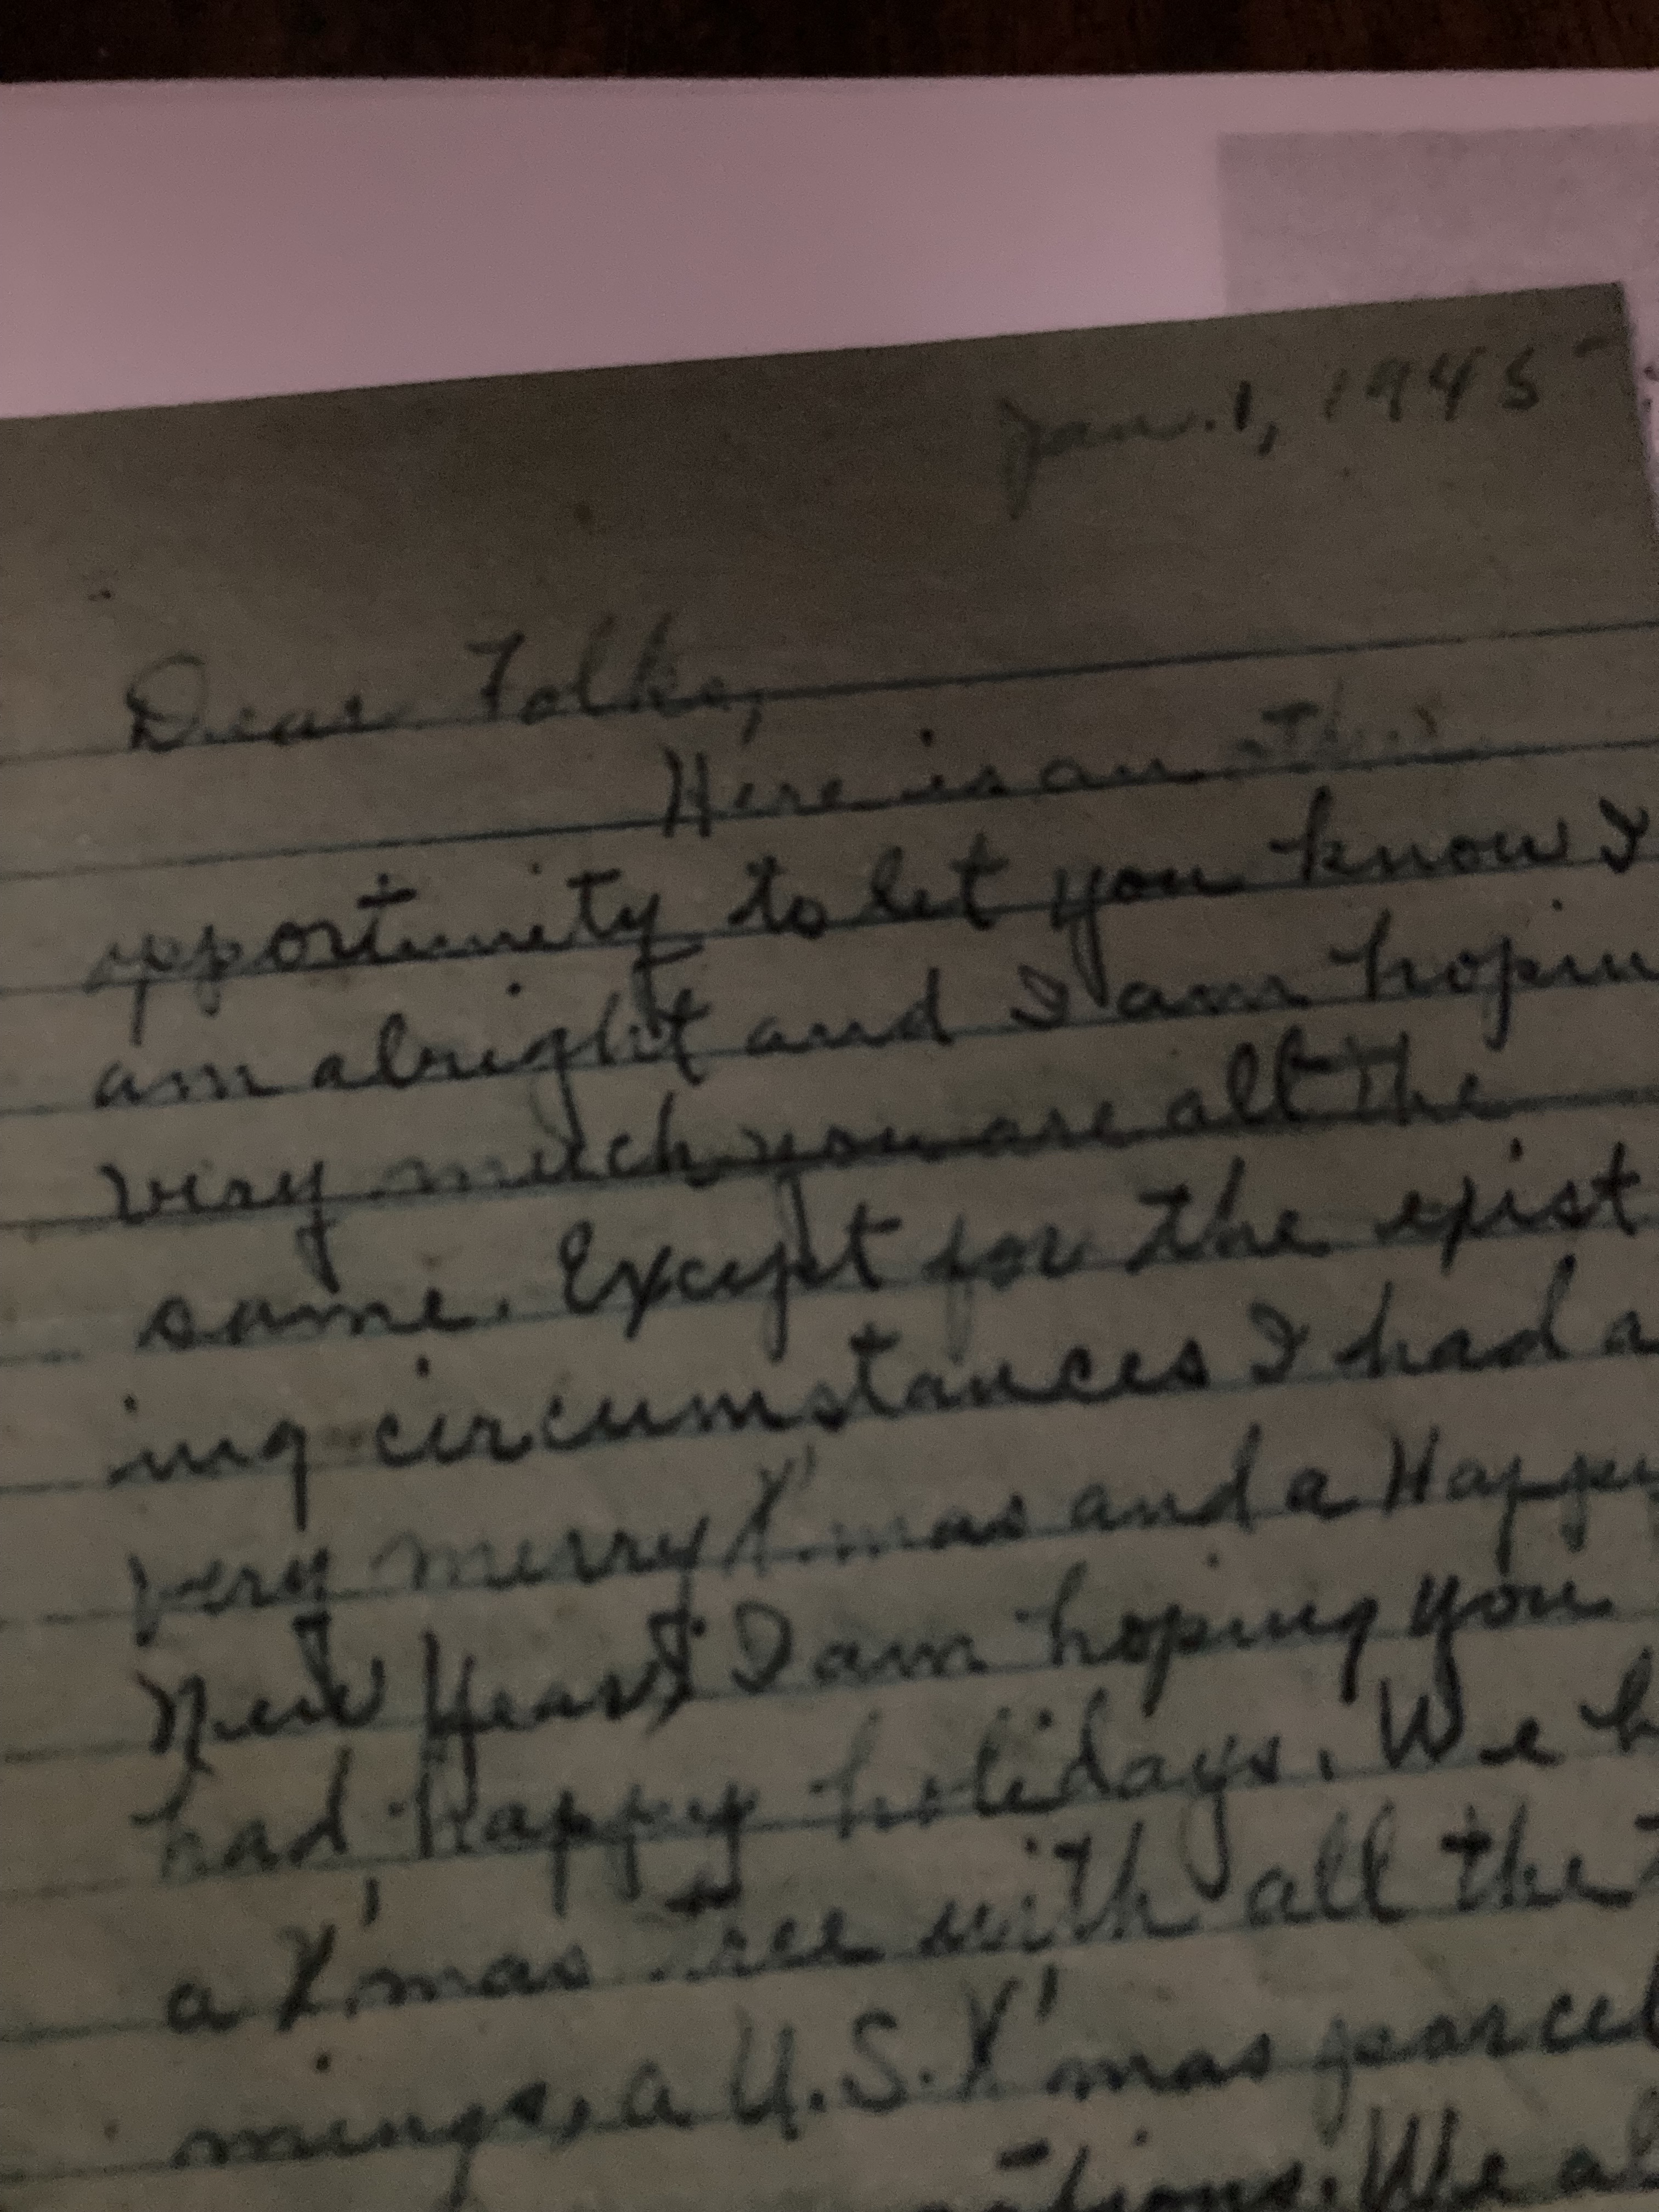 Jan. 1, 1945
Dear Folks,
Here is an other
opportunity to let you know I
am alright and I am hopin
very much you are all the
same. Except for the exist
ing circumstances I had a
very merry X'mas and a Happy
New Year, I am hoping you
had happy holidays. We h
a X'mas Tree with all the
mings, a U.S. X'mas parcel
We al